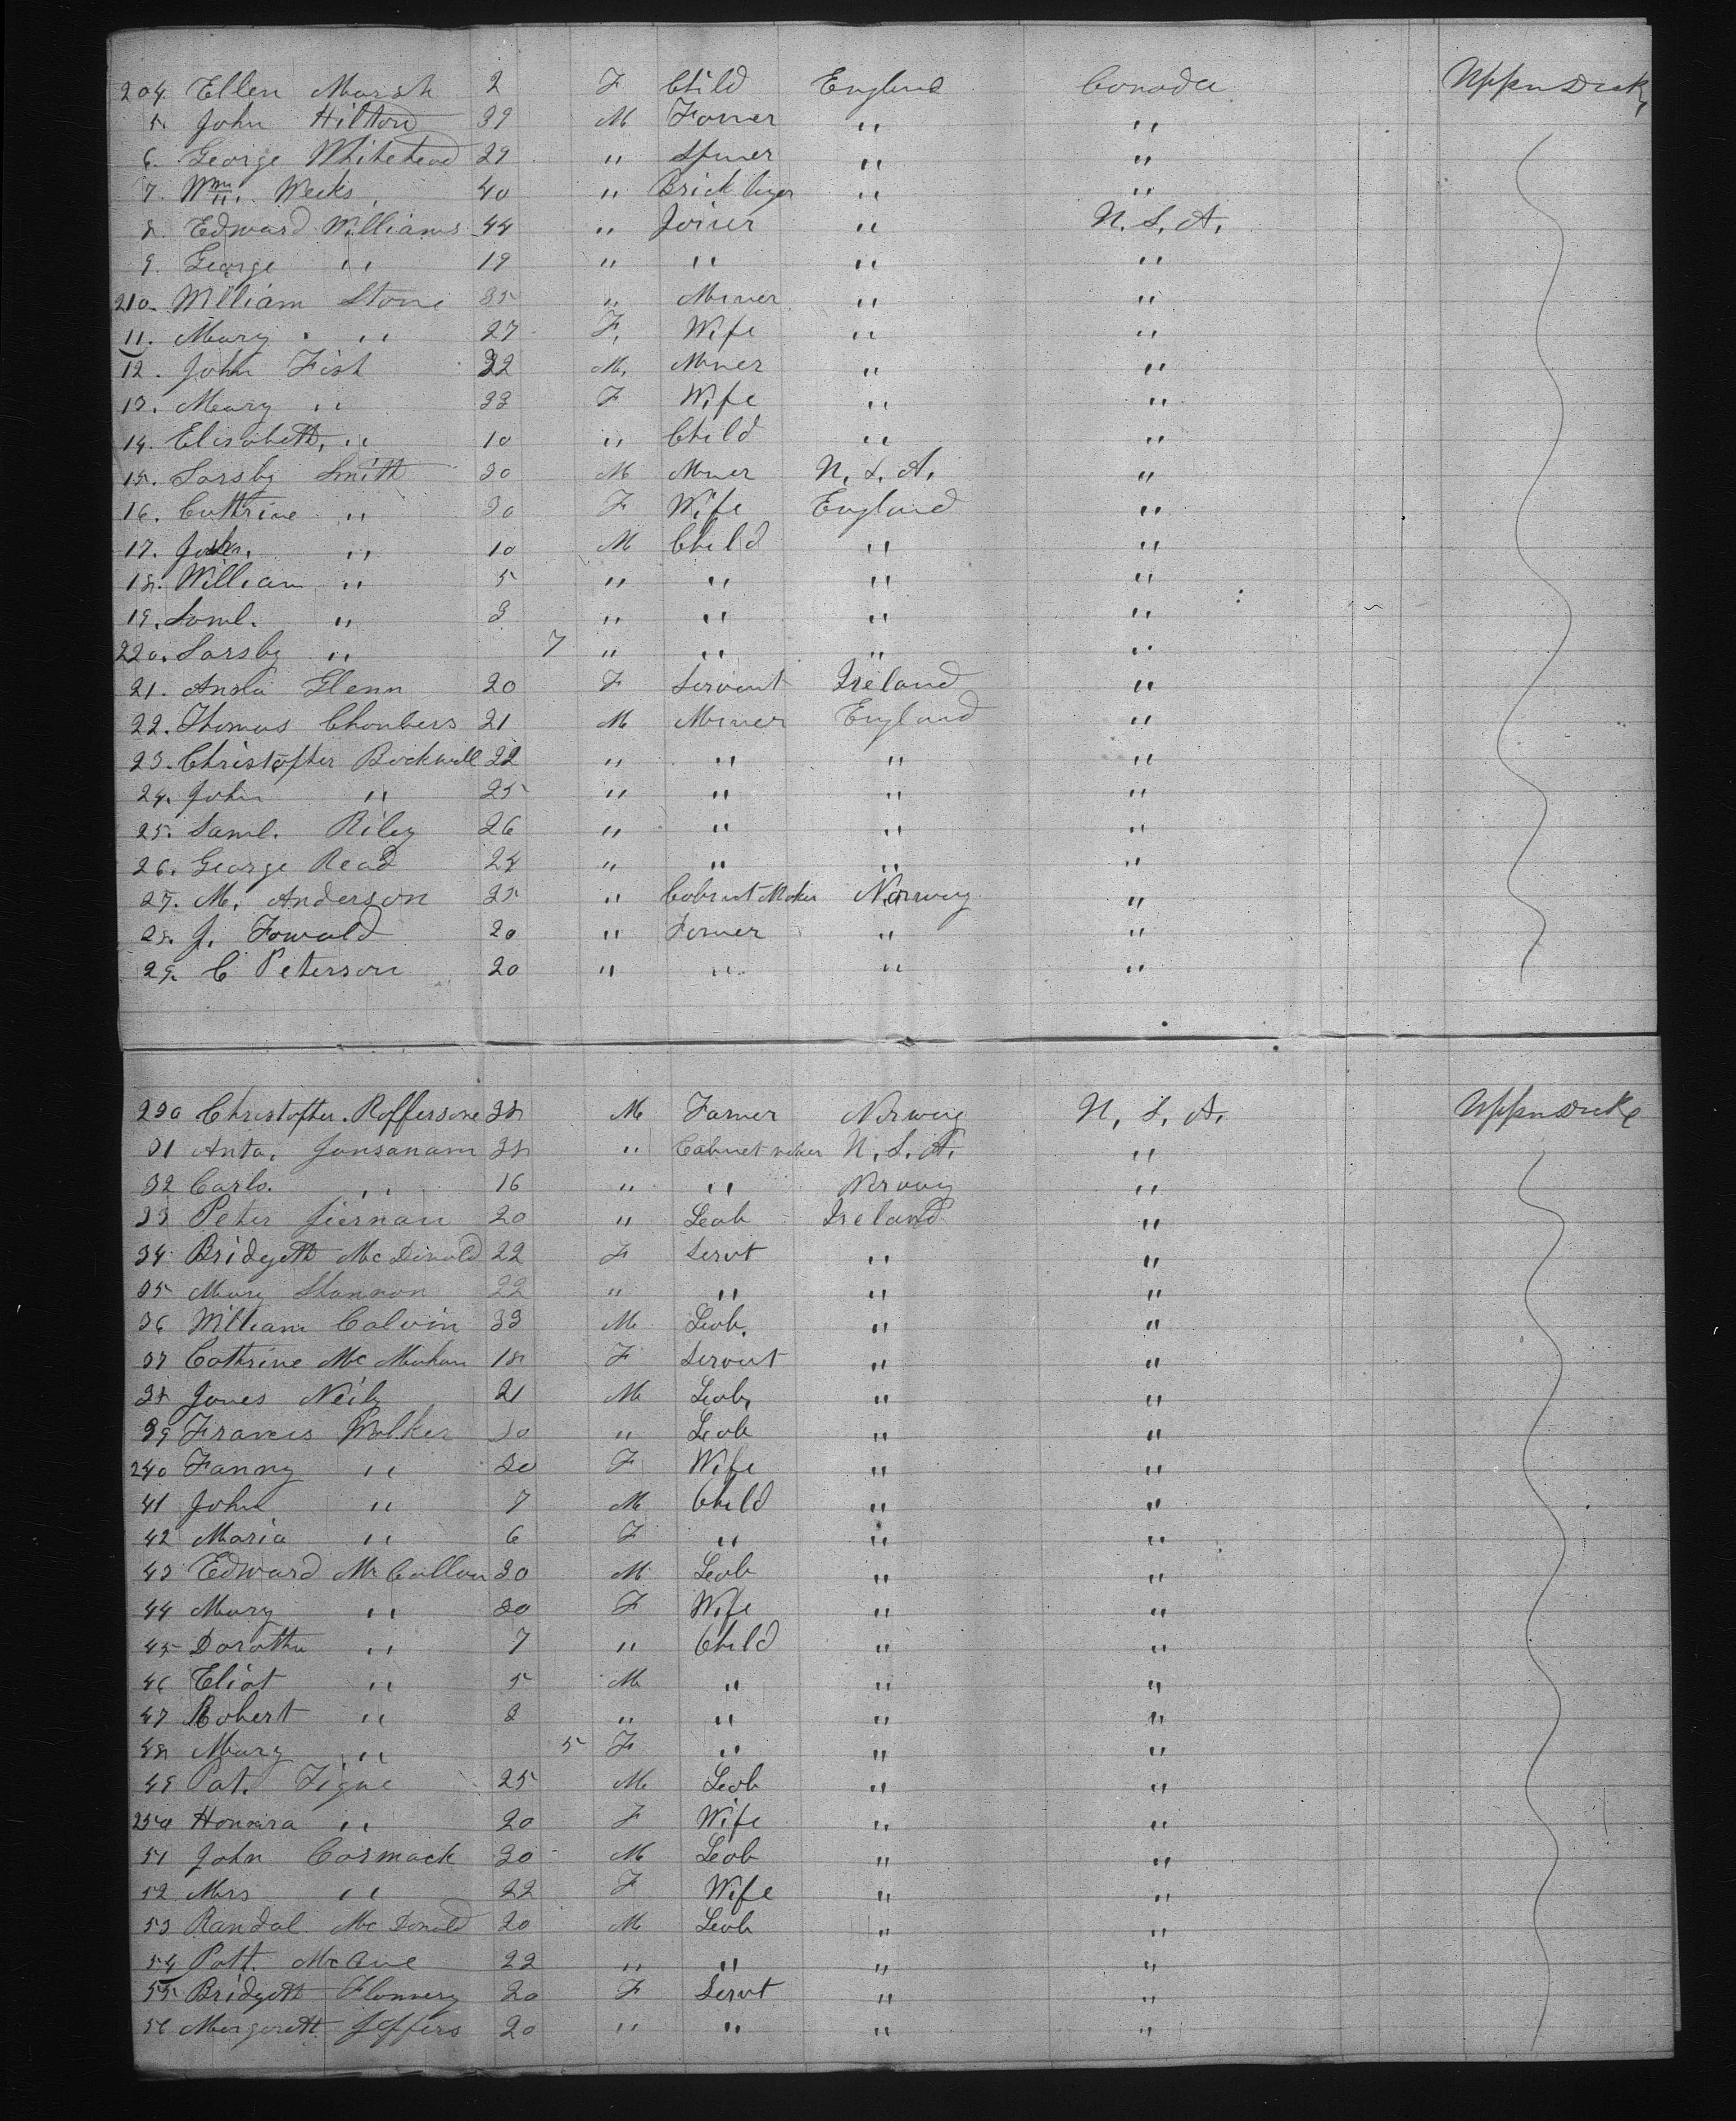 204. Ellen Marsh 2 F Child England Canada Upper Deck
5. John Hilton 39 M Farmer " "
6. George Whitehead 29 " Spiner " "
7. Wm. Weeks 40 " Brick layer " "
8. Edward Williams 44 " Joiner " U. S. A.
9. George " 19 " " " "
210. William Stone 35 " Miner " "
11. Mary " 27 F. Wife " "
12. John Fish 32 M. Miner " "
13. Mary " 33 F Wife " "
14. Elisabeth " 10 " Child " "
15. Sarsby Smith 30 M Miner U. S. A. "
16. Cathrine " 30 F Wife England "
17. John " 10 M Child " "
18. William " 5 " " " "
19. Saml. " 3 " " " "
220. Sarsby " 7 " " " "
21. Anna Glenn 20 F Servant Ireland "
22. Thomas Chambers 21 M Miner England "
23. Christopher Bockwell 22 " " " "
24. John " 25 " " " "
25. Saml. Riley 26 " " " "
26. George Read 24 " " " "
27. M. Anderson 25 " Cabinet Maker Norway "
28. J. Fowald 20 " Farmer " "
29. C Peterson 20 " " " "
230 Christopher Roffersone 38 M Farmer Norway U. S. A. Upper Deck
31 Anta. Jonsanam 38 " Cabinet maker U. S. A. "
32 Carlo. " 16 " " Norway "
33 Peter 20 " Leab Ireland "
34 Bridgett Mc Donald 22 F Servt " "
35 Mary Shannon 22 " " " "
36 William Calvin 33 M Leab. " "
37 Cathrine Mc Mahan 18 F Servant " "
38 James Neily 21 M Leab. " "
39 Francis Walker 30 " Leab " "
240 Fanny " 30 F Wife " "
41 John " 7 M Child " "
42 Maria " 6 F " " "
43 Edward Mc Callan 30 M Leab " "
44 Mary " 30 F Wife " "
45 Dorotha " 7 " Child " "
46 Eliot " 5 M " " "
47 Robert " 3 " " " "
48 Mary " 5 F " " "
49 Pat. Tigue 25 M Leab " "
250 Honnra " 20 F Wife " "
51 John Cormack 30 M Leab " "
52 Mrs " 22 F Wife " "
53 Randal Mc Donald 20 M Leab " "
54 Patt. Mc Cue 22 " " " "
55 Bridgett Flannery 20 F Servt " "
56 Margarett Jeffers 20 " " " "